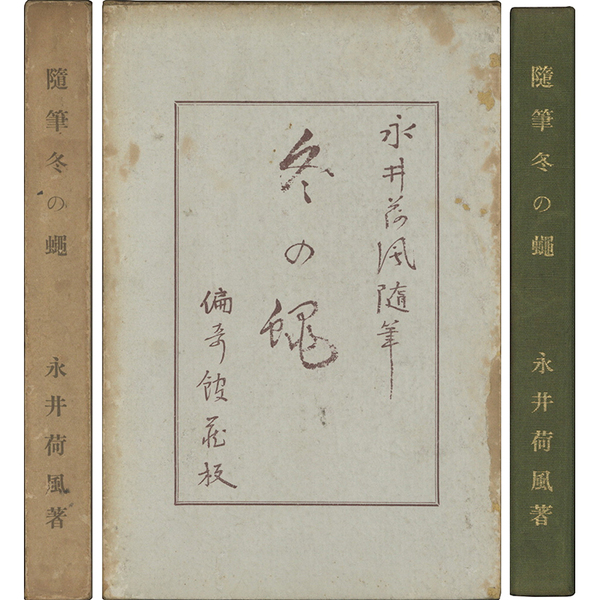 隨筆冬の蠅　永井荷風著
永井荷風隨筆
冬の蠅
偏奇館藏板
隨筆冬の蠅　永井荷風著